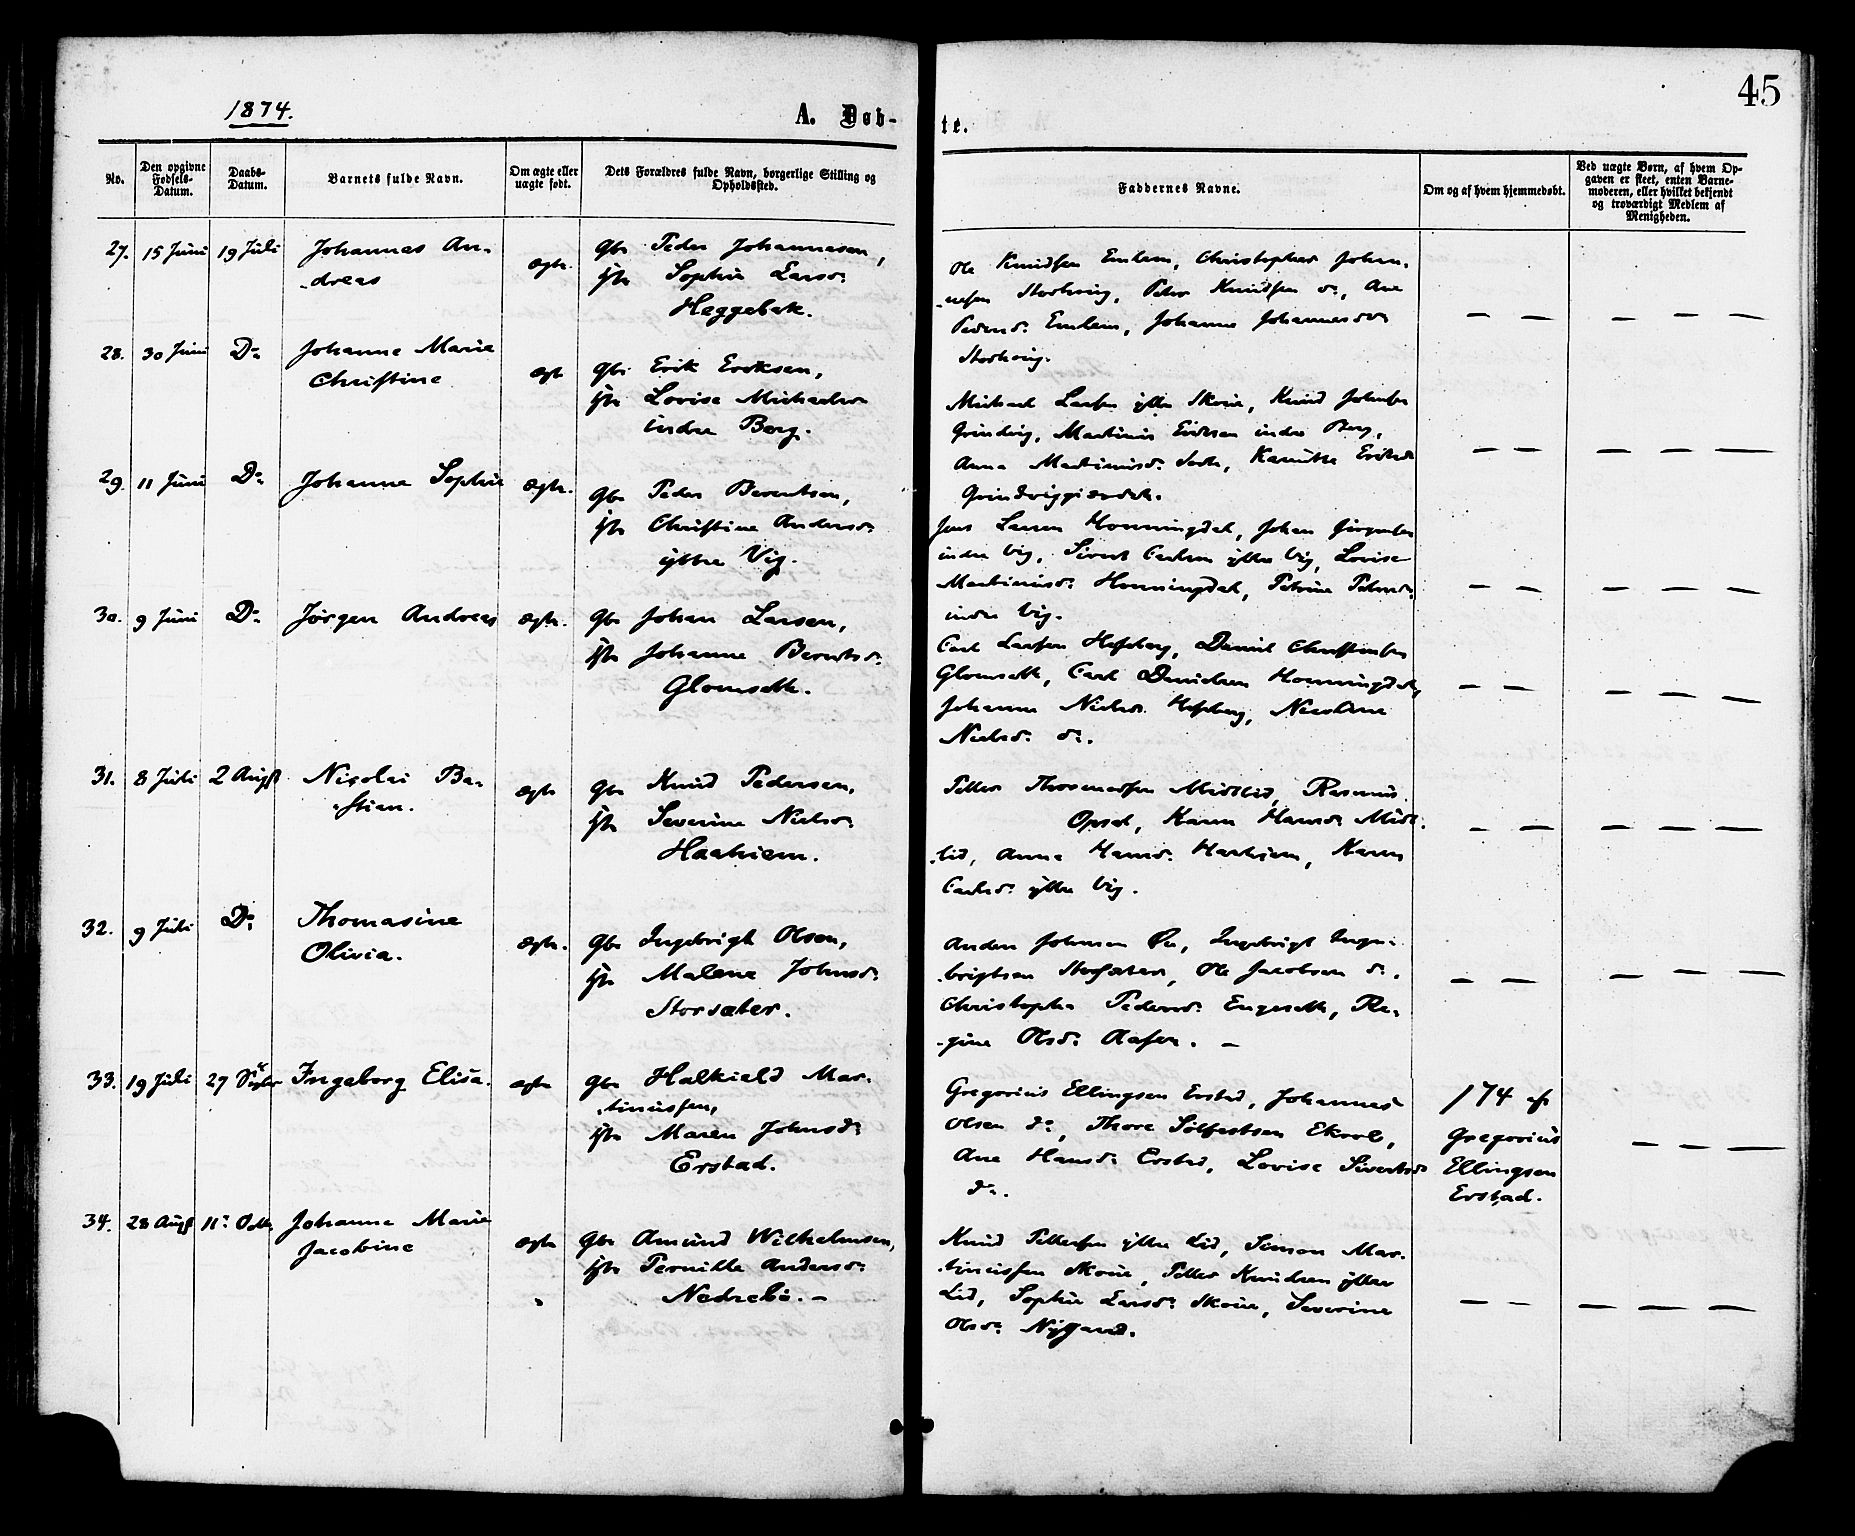 45
1874.
A. Døb-
te.
No.
Den opgivne
Fødsels-
Datum.
Daabs-
Datum.
Barnets fulde Navn.
Om ægte eller
uægte født.
Dets Forældres fulde Navn, borgerlige Stilling og
Opholdssted.
Faddernes Navne.
Om og af hvem hjemmedøbt.
Ved uægte Børn, af hvem Op-
gaven er skeet, enten Barne-
moderen, eller hvilket bekjendt
og troværdigt Medlem af
Menigheden.
27. 15 Juni 19 Juli Johannes An-
-dreas
ægte.
Gbr Peder Johannesen,
Sophie Larsd:
Heggebak.
Ole Knudsen Emlem, Christopher Johan-
-nesen Storhoug, Peter Knudsen do, Ane
Pedersd: Emlem, Johanne Johannesdr
Storhoug.
28. 30 Juni Do Johanne Marie
Christine
ægte
Gbr Erik Eriksen,
Lovise Michaelsdr
indre Berg.
Michael Larsen yttre Skoue, Knud Johnsen
Grindvig, Martinus Eriksen indre Berg,
Anna Martinusd:
Grindviggjærdet.
29. 11 Juni Do Johanne Sophie ægte.
Gbr Peder Berentsen,
Christine Andersd:
yttre Vig.
Jens Larsen Honningdal, Johan
indre Vig, Sivert Carlsen yttre Vig, Lovise
Martinusd: Honningdal, Petrine Petersd:
indre Vig.
30. 9 Juni Do Jørgen Andreas ægte.
Gbr Johan Larsen,
Johanne Berntsd:
Glomsett.
Carl Larsen Hessberg, Daniel
Glomsett, Carl Danielsen Honningdal,
Johanne Nielsd: Hessberg, Nicoline
Nielsd: do.
31. 8 Juli 2 Augst Nicolai Ba-
-stian.
ægte
Gbr Knud Pedersen,
Severine Nielsd:
Haahiem.
Petter Thosmedsen Midtlid, Rasmus
Opsal, Karen Hansd: Midt-
-lid, Anna Hansd: Haahiem, Karen
Carlsd: yttre Vig.
32. 9 Juli Do Thomasine
Olivia.
ægte.
Gbr Ingebrigt Olsen,
Malene Johnsd:
Storsæter.
Anders Johnsen Øie, Ingebrigt Inge-
brigtsen Storsæter, Ole Jacobsen do,
Pedersd: Engesett, Re-
-gine Olsd: Aasen. -
33. 19 Juli 27 Septbr Ingeborg Elisa. ægte
Gbr Halkield Mar-
-tinussen,
Maren Johnsd:
Erstad.
Gregorius Ellingsen Erstad, Johannes
Olsen do, Thore Solfestsen Ekroll,
Ane Hansd: Erstad, Lovise Sivertsd:
do.
1/74 af
Gregorius
Ellingsen
Erstad.
34. 28 Augst 11: Octb. Johanne Marie
Jacobine
ægte
Gbr Amund Wilhelmsen,
Pernille Andersd:
Nedrebø. -
Knud Pettersen yttre Lid, Simon Mar-
-tinussen Skoue, Petter Knudsen yttre
Lid, Sophie Larsd: Skoue, Severine
Olsd: Nygaard.